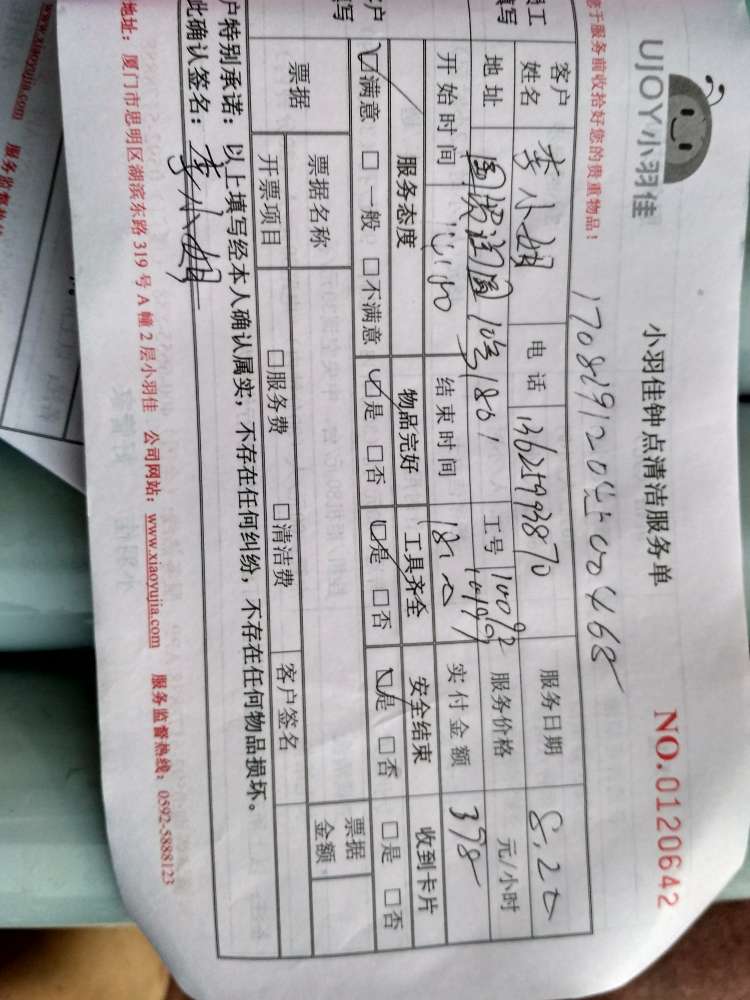 UJOY小羽佳
小羽佳钟点清洁服务单
NO.0120642
于服务前收拾好您的贵重物品！
客户姓名 李小姐 电话 13625993870 服务日期 8.20
地址 国贸 10号1801 工号 10092 服务价格 元/小时
开始时间 结束时间 18:00 实付金额 398
服务态度 物品完好 工具齐全 安全结束 收到卡片
☑满意 □一般 □不满意 ☑是 □否 ☑是 □否 ☑是 □否 □是 □否
票据 票据名称 票据金额
开票项目 □服务费 □清洁费 客户签名
户特别承诺：以上填写经本人确认属实，不存在任何纠纷，不存在任何物品损坏。
此确认签名：李小姐
地址：厦门市思明区湖滨东路319号A幢2层小羽佳 公司网站：www.xiaoyujia.com 服务监督热线：0592-5888123